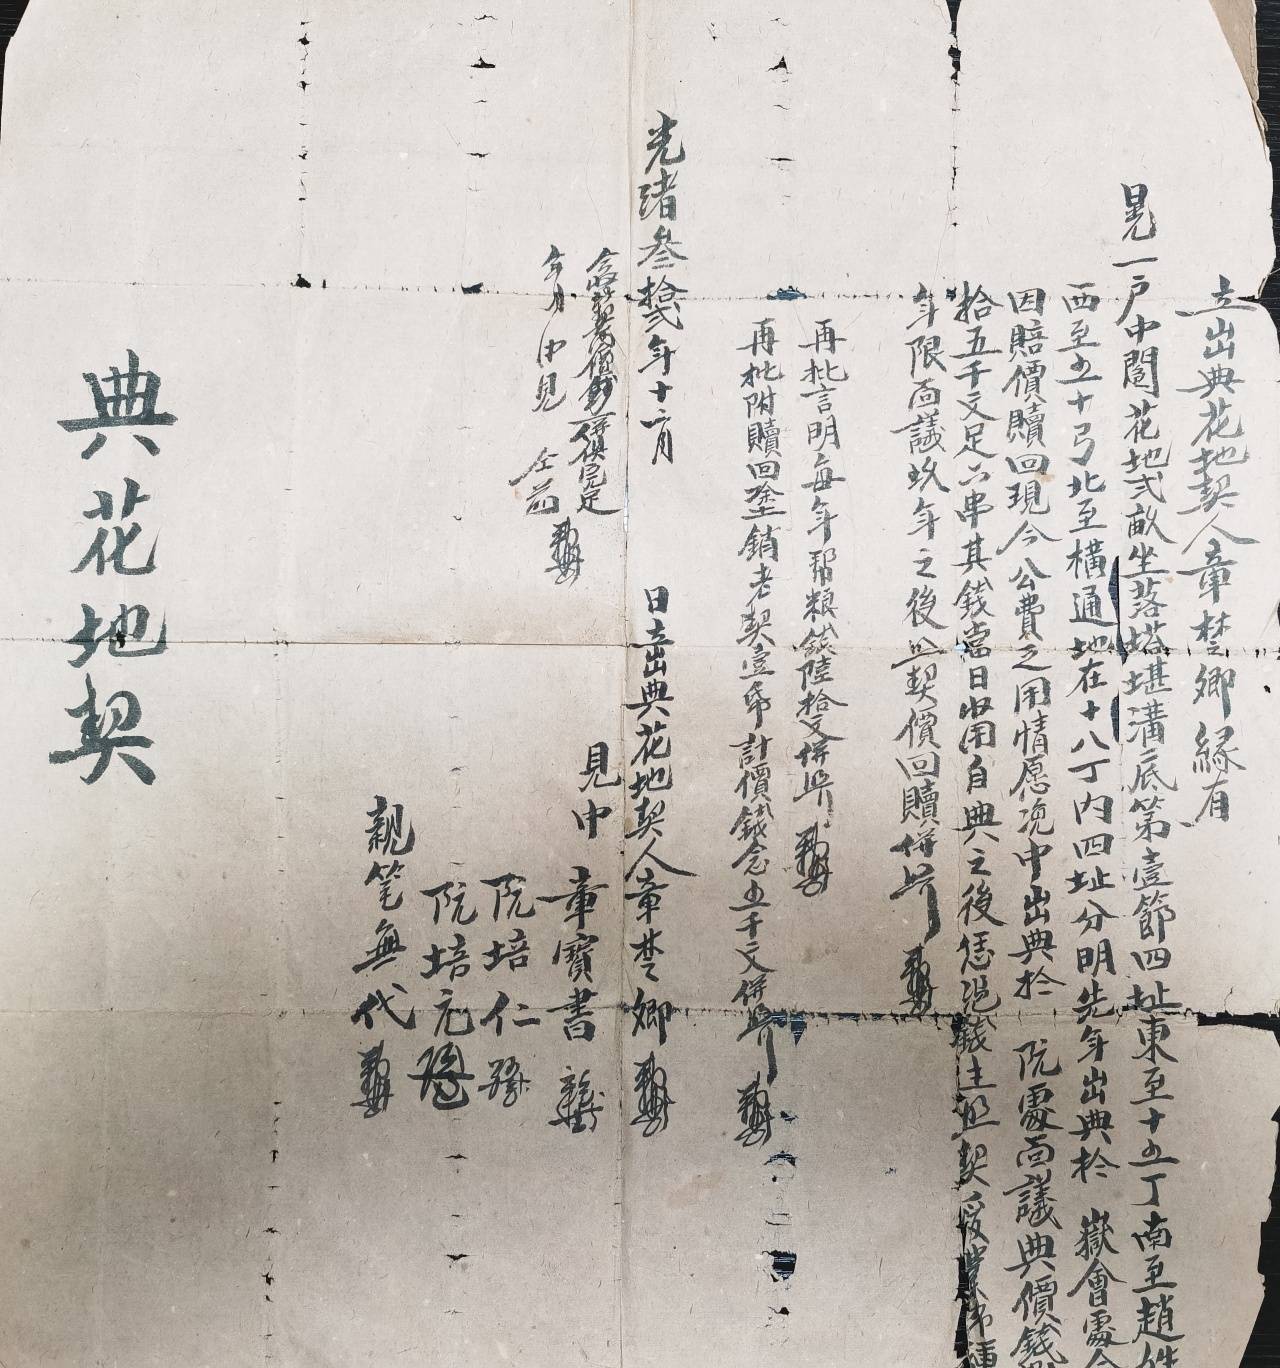 立出典花地契人章楚卿縁有
晃一戶中闊花地弍畝坐落塔堪溝底第壹節四址東至十五丁南至趙姓
西至五十弓北至橫通地在十八丁內四址分明先年出典於 嶽會處今
因賠價贖回現今公費之用情愿浼中出典於 阮處面議典價錢
拾五千文足六串其錢當日收用自典之後恁浼錢主照契
年限面議玖年之後照契價回贖併照
再批言明每年幫粮錢陸拾文併照
再批附贖回塗銷老契壹帋計價錢念五千文併照
光緒叁拾弍年十二月 日立出典花地契人章楚卿
見中 章寶書
阮培仁
阮培元
親笔無代
契價錢一併俱完足
年月 中見 仝前
典花地契